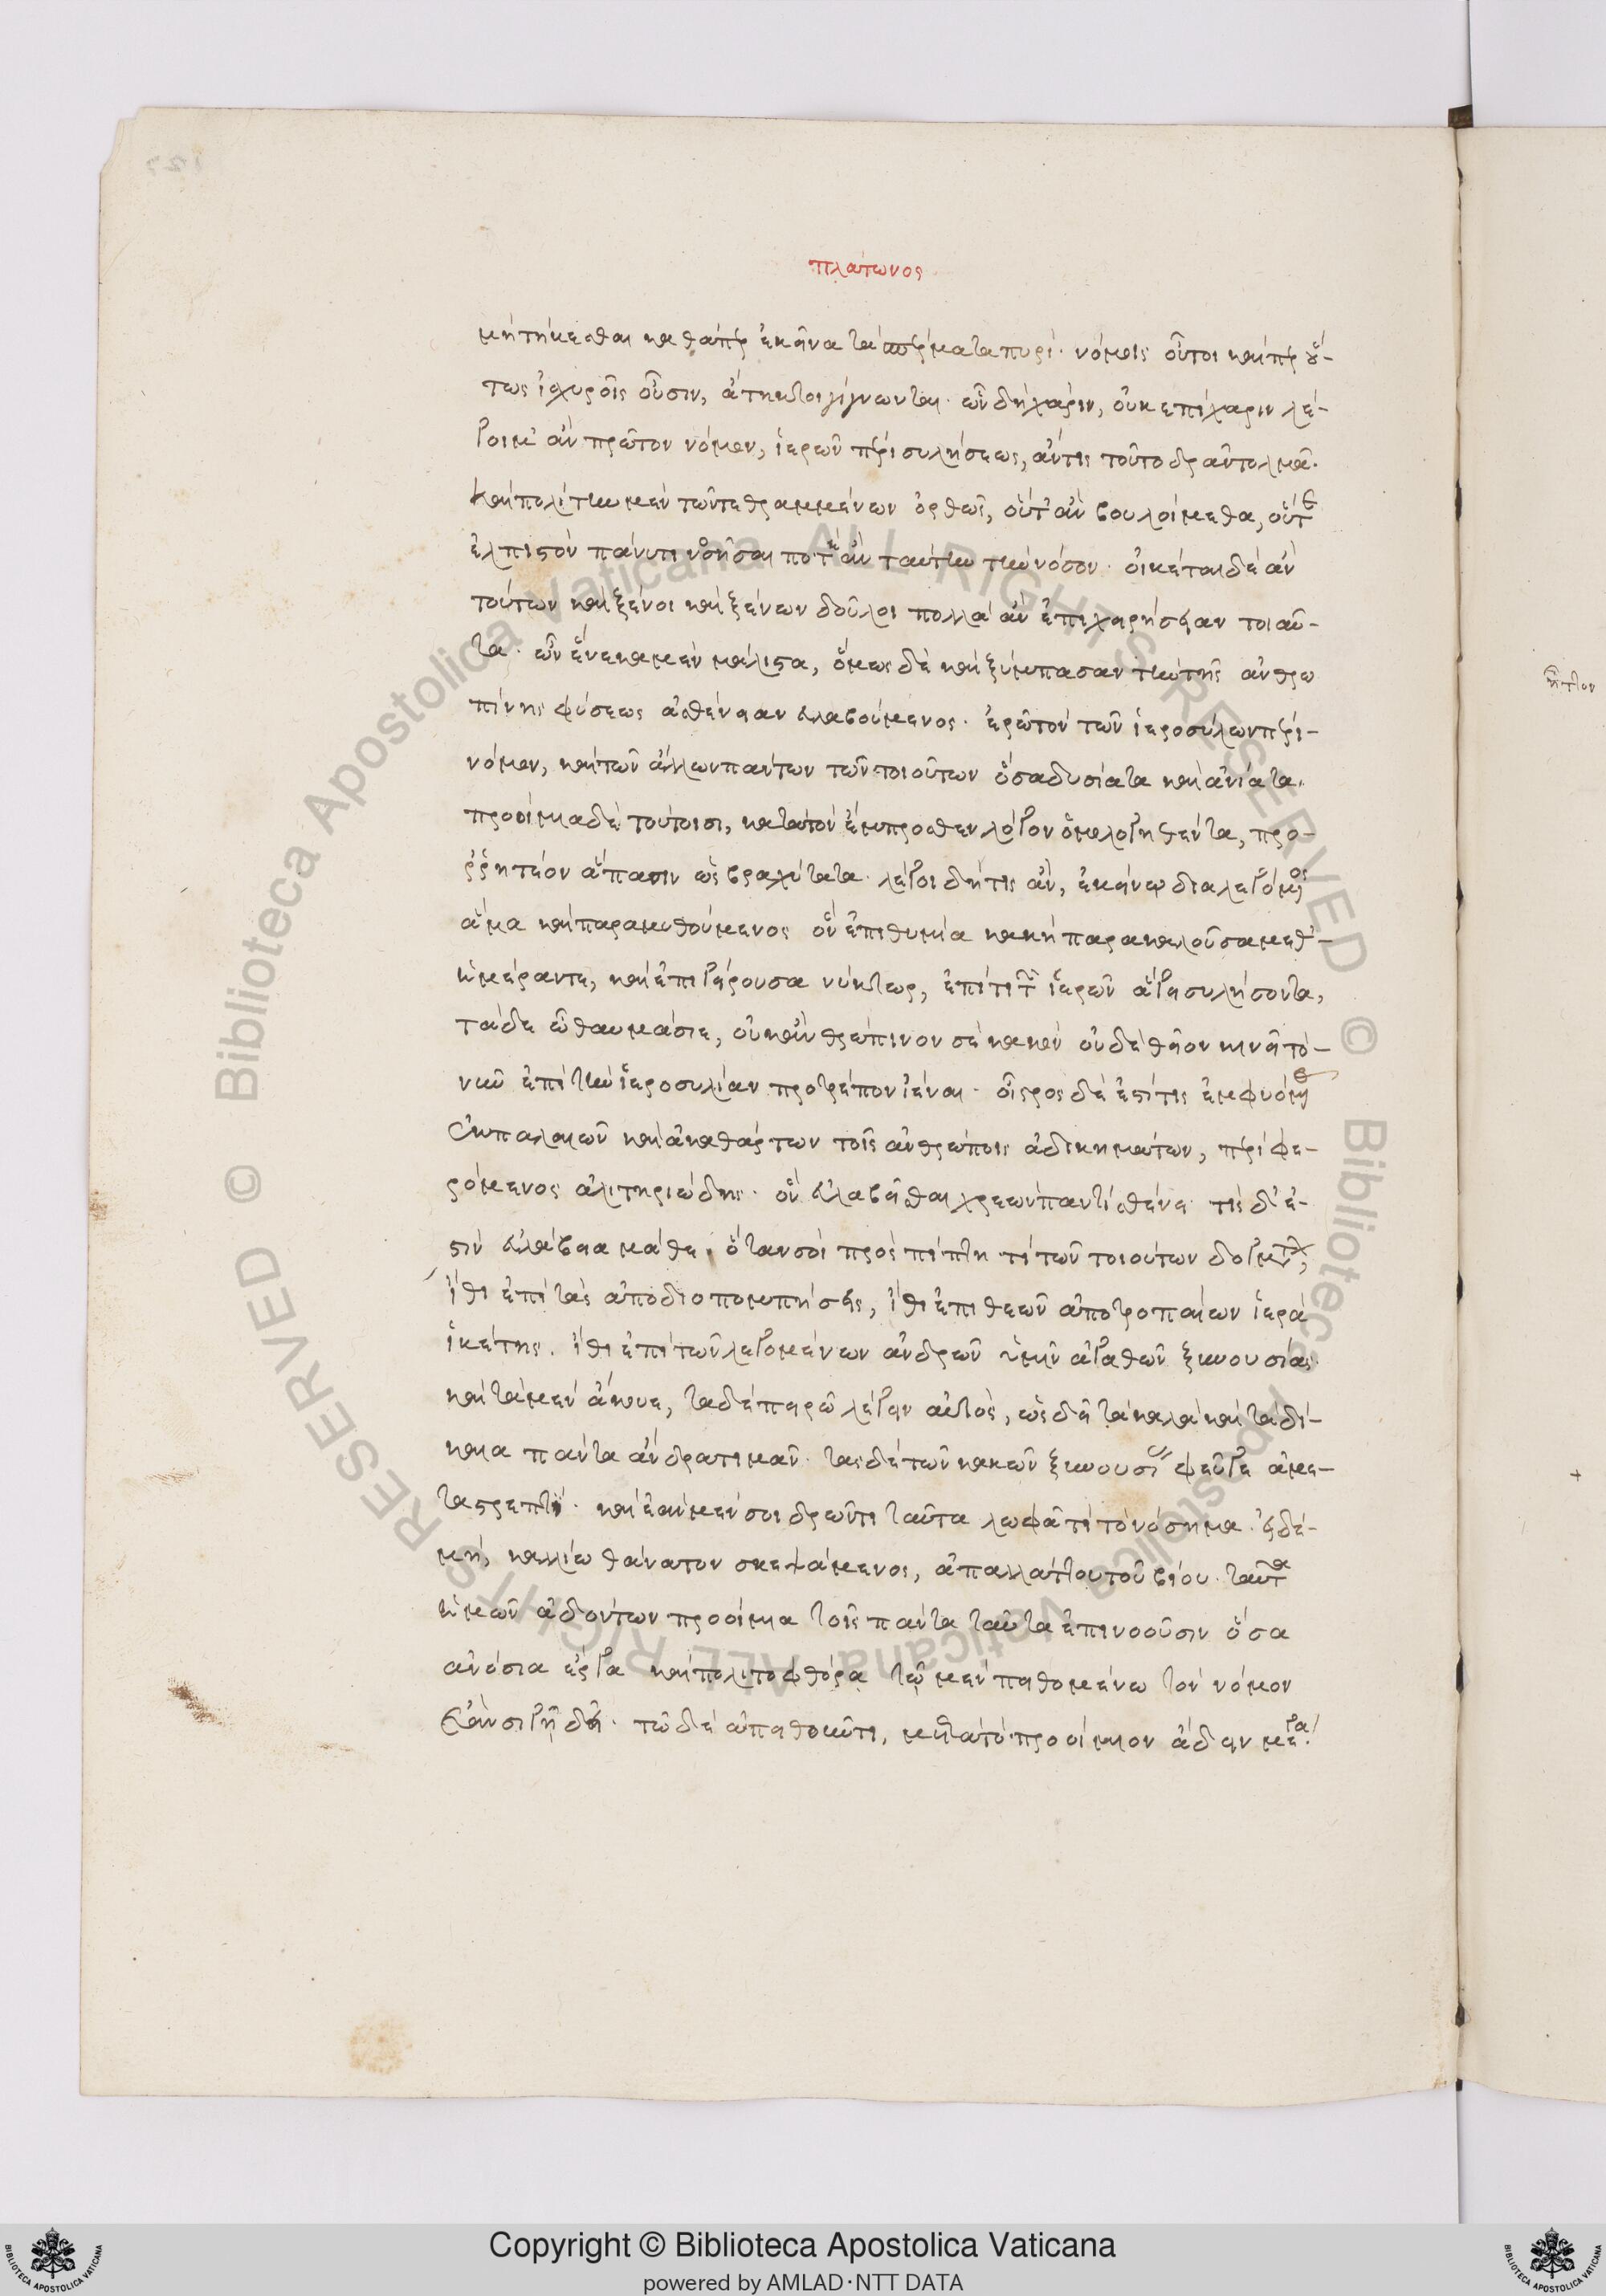 πλάτωνος
μὴ τήκεσθαι καθάπερ ἐκεῖνα τὰ σπέρματα πυρί· νόμοις οὗτοι καίπερ οὕ-
τως ἰσχυροῖς οὖσιν, ἄτηκτοι γίγνωνται· ὧν δὴ χάριν, οὐκ ἐπίχαριν λέ-
γοιμ' ἂν πρῶτον νόμον, ἱερῶν πέρι συλήσεως, ἄν τις τοῦτο δρᾶν τολμᾷ·
καὶ πολίτην μὲν τῶν τεθραμμένων ὀρθῶς, οὔτ' ἂν βουλοίμεθα, οὔτε
ἐλπιστὸν πάνυ τι νοσῆσαί ποτε ἂν ταύτην τὴν νόσον· οἰκέται δὲ ἂν
τούτων καὶ ξένοι καὶ ξένων δοῦλοι πολλὰ ἂν ἐπιχειρήσειαν τοιαῦ-
τα· ὧν ἕνεκα μὲν μάλιστα, ὅμως δὲ καὶ ξύμπασαν τὴν τῆς ἀνθρω
πίνης φύσεως ἀσθένειαν εὐλαβούμενος· ἐρῶ τὸν τῶν ἱεροσύλων πέρι
νόμον, καὶ τῶν ἄλλων πάντων τῶν τοιούτων ὅσα δυσίατα καὶ ἀνίατα·
προοίμια δὲ τούτοισι, κατὰ τὸν ἔμπροσθεν λόγον ὁμολογηθέντα, προ-
ῤῥητέον ἅπασιν ὡς βραχύτατα· λέγοι δή τις ἂν, ἐκείνῳ διαλεγόμενος
ἅμα καὶ παραμυθούμενος ὃν ἐπιθυμία κακὴ παρακαλοῦσα μεθ'-
ἡμέραν τε, καὶ ἐπεγείρουσα νύκτωρ, ἐπί τι τῶν ἱερῶν ἄγει συλήσοντα,
τάδε ὦ θαυμάσιε, οὐκ ἀνθρώπινόν σε κακὸν οὐδὲ θεῖον κινεῖ τὸ-
νῦν ἐπὶ τὴν ἱεροσυλίαν προτρέπον ἰέναι· οἶστρος δέ ἐστί τις ἐμφυόμενος
ἐκ παλαιῶν καὶ ἀκαθάρτων τοῖς ἀνθρώποις ἀδικημάτων, περιφε-
ρόμενος ἀλιτηριώδης· ὃν εὐλαβεῖσθαι χρεὼν παντὶ σθένει· τίς δ' ἐ-
στὶν εὐλάβεια μάθε· ὅταν σοι προσπίπτῃ τι τῶν τοιούτων δογμάτων,
ἴθι ἐπὶ τὰς ἀποδιοπομπήσεις, ἴθι ἐπὶ θεῶν ἀποτροπαίων ἱερὰ
ἱκέτης. ἴθι ἐπὶ τῶν λεγομένων ἀνδρῶν ὑμῖν ἀγαθῶν ξυνουσίας·
καὶ τὰ μὲν ἄκουε, τὰ δὲ πειρῶ λέγειν αὐτὸς, ὡς δεῖ τὰ καλὰ καὶ τὰ δί-
καια πάντα ἄνδρα τιμᾶν· τὰς δὲ τῶν κακῶν ξυνουσίας φεῦγε ἀμε-
ταστρεπτί· καὶ ἐὰν μέν σοι δρῶντι ταῦτα λωφᾷ τι τὸ νόσημα· εἰ δὲ-
μή, καλλίω θάνατον σκεψάμενος, ἀπαλλάττου τοῦ βίου· ταῦτα
ἡμῶν ἀδόντων προοίμια τοῖς πάντα ταῦτα ἐπινοοῦσιν ὅσα
ἀνόσια ἔργα καὶ πολιτοφθόρα τῷ μὲν πειθομένῳ τὸν νόμον
ἐᾶν σιγῇ δεῖ· τῷ δὲ ἀπειθοῦντι, μετὰ τὸ προοίμιον ᾄδειν μέγα.